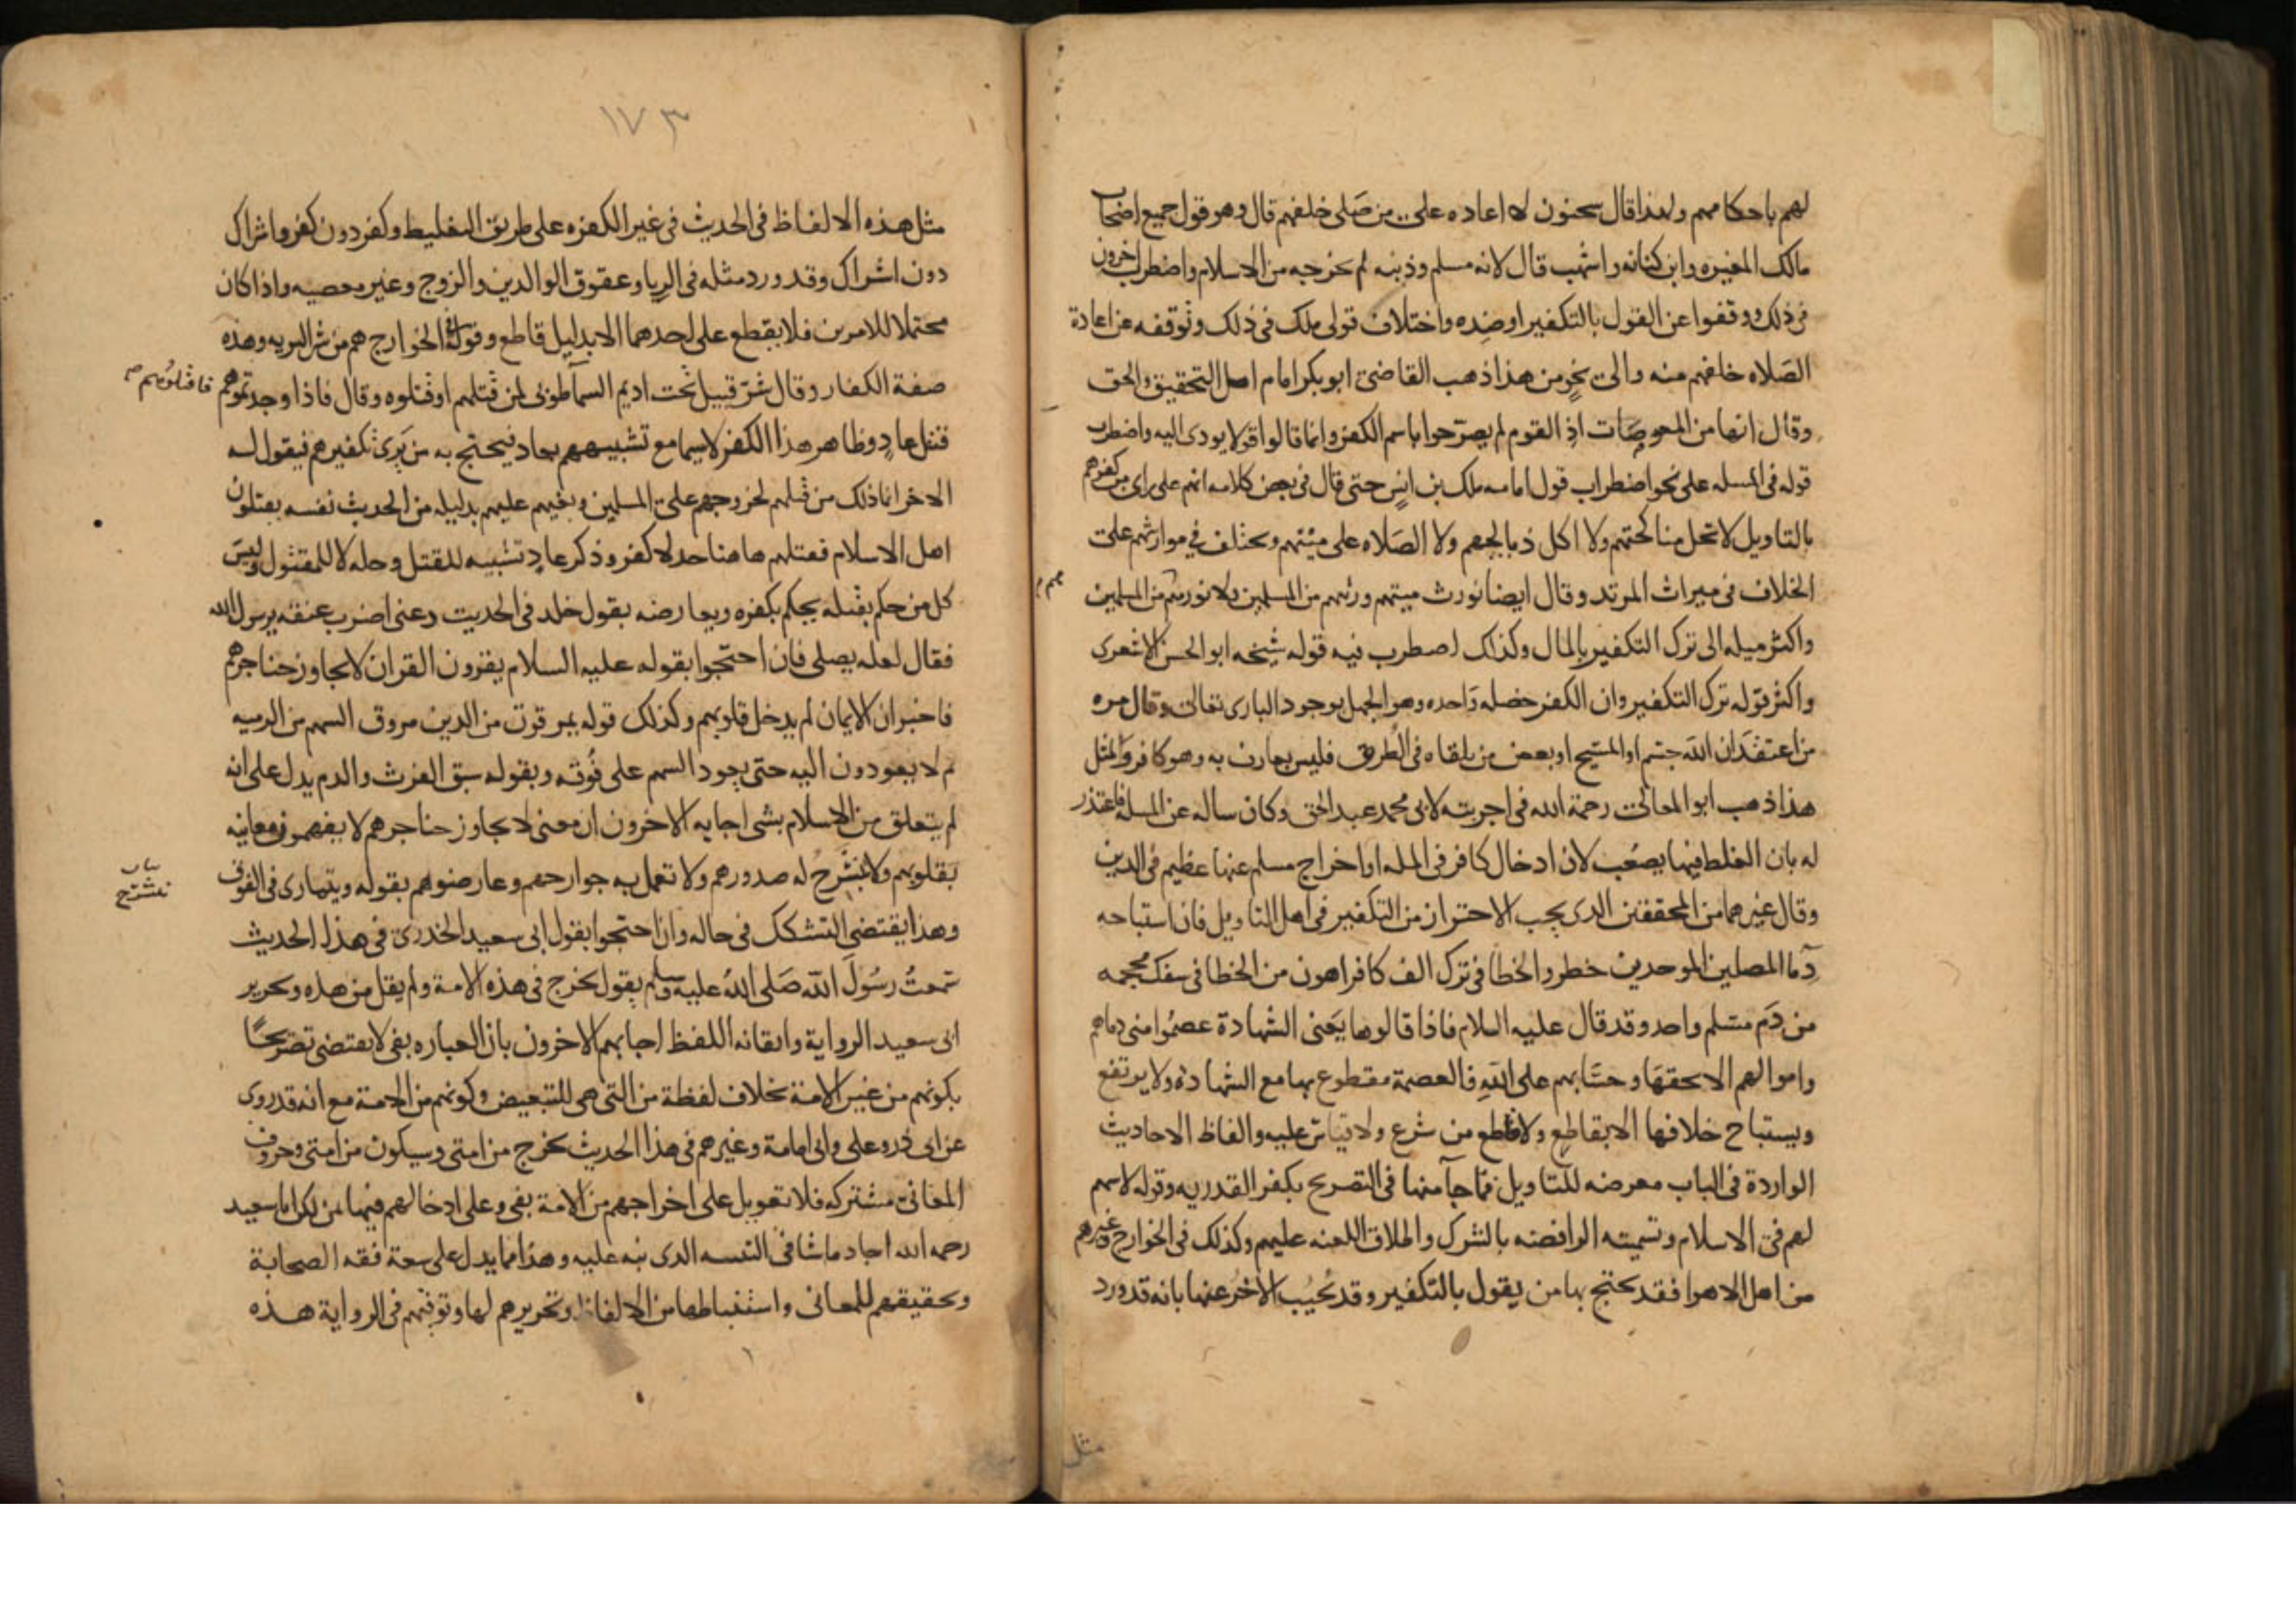 لهم باحكامهم ولهذا قال سحنون لا اعاده على من صلى خلفهم قال وهو قول جميع اصحاب
مالك المغيره وابن كنانه واشهب قال لانه مسلم وذنبه لم يخرجه من الاسلام واضطرب اخرون
في ذلك ووقفوا عن القول بالتكفير او ضده واختلاف قولى ملك في ذلك وتوقفه عن اعادة
الصلاه خلفهم منه والى نحو من هذا ذهب القاضى ابو بكر امام اهل التحقيق والحق
وقال انها من المعوصات اذ القوم لم يصرحوا باسم الكفر وانما قالوا قولا يودى اليه واضطرب
قوله في المسله على نحو اضطراب قول امامه ملك بن انس حتى قال في بعض كلامه انهم على راى من كفرهم
بالتاويل لا تحل مناكحتهم ولا اكل ذبايحهم ولا الصلاه على ميتهم ويختلف في مواريثهم على
الخلاف في ميراث المرتد وقال ايضا نورث ميتهم ورثتهم من المسلمين ولا نورثهم من المسلمين
واكثر ميله الى ترك التكفير بالمال وكذلك اضطرب فيه قوله شيخه ابو الحسن الاشعرى
واكثر قوله ترك التكفير وان الكفر خصله واحده وهو الجهل بوجود البارى تعالى وقال مره
من اعتقد ان الله جسم او المسيح او بعض من يلقاه في الطرق فليس بعارف به وهو كافر ولمثل
هذا ذهب ابو المعالى رحمة الله في اجوبته لابى محمد عبد الحق وكان ساله عن المسله فاعتذر
له بان الغلط فيها يصعب لان ادخال كافر في المله او اخراج مسلم عنها عظيم في الدين
وقال غيرهما من المحققين الذى يجب الاحتراز من التكفير في اهل التاويل فان استباحه
دما المصلين الموحدين خطر والخطا في ترك الف كافر اهون من الخطا في سفك محجمه
من دم مسلم واحد وقد قال عليه السلام فاذا قالوها يعنى الشهادة عصموا منى دماهم
واموالهم الا بحقها وحسابهم على الله فالعصمة مقطوع بها مع الشهادة ولا يرتفع
ويستباح خلافها الا بقاطع ولا قاطع من شرع ولا قياس عليه والفاظ الاحاديث
الواردة في الباب معرضه للتاويل فما جا منها في التصريح بكفر القدريه وقوله لا سهم
لهم في الاسلام وتسميته الرافضه بالشرك واطلاق اللعنه عليهم وكذلك في الخوارج وغيرهم
من اهل الاهوا فقد يحتج بها من يقول بالتكفير وقد يجيب الاخر عنها بانه قد ورد
مثل
١٧٣
مثل هذه الالفاظ في الحديث في غير الكفره على طريق التغليظ وكفر دون كفر واشراك
دون اشراك وقد ورد مثله في الريا وعقوق الوالدين والزوج وغير معصيه واذا كان
محتملا للامرين فلا يقطع على احدهما الا بدليل قاطع وقوله في الخوارج هم من شر البريه وهذه
صفة الكفار وقال شر قبيل تحت اديم السما طوبى لمن قتلهم او قتلوه وقال فاذا وجدتموهم
فاقتلوهم صح
قتل عاد وظاهر هذا الكفر لاسيما مع تشبيههم بعاد فيحتج به من يرى تكفيرهم فيقول له
الاخر انما ذلك من قتلهم لخروجهم على المسلمين وبغيهم عليهم بدليله من الحديث نفسه يقتلون
اهل الاسلام فقتلهم هاهنا حد لا كفر وذكر عاد تشبيه للقتل وحله لا للمقتول وليس
كل من حكم بقتله يحكم بكفره ويعارضه بقول خلد في الحديث دعنى اضرب عنقه يرسول الله
فقال لعله يصلى فان احتجوا بقوله عليه السلام يقرون القران لا يجاوز حناجرهم
فاخبر ان الايمان لم يدخل قلوبهم وكذلك قوله يمرقون من الدين مروق السهم من الرميه
ثم لا يعودون اليه حتى يعود السهم على فوقه وبقوله سبق الفرث والدم يدل على انه
لم يتعلق من الاسلام بشى اجابه الاخرون ان معنى لا يجاوز حناجرهم لا يفهمون معانيه
بقلوبهم ولا تنشرح له صدورهم ولا تعمل به جوارحهم وعارضوهم بقوله ويتمارى في الفوق
بيان
تنشرح
وهذا يقتضى التشكك في حاله وان احتجوا بقول ابى سعيد الخدرى في هذا الحديث
سمعت رسول الله صلى الله عليه وسلم يقول يخرج في هذه الامة ولم يقل من هذه وتحرير
ابى سعيد الرواية واتقانه اللفظ اجابهم الاخرون بان العباره بفى لا يقتضى تصريحا
بكونهم من غير الامة بخلاف لفظة من التى هى للتبعيض وكونهم من الامة مع انه قد روى
عن ابى ذر وعلى وابى امامة وغيرهم في هذا الحديث يخرج من امتى وسيكون من امتى وحروف
المعانى مشتركه فلا تعويل على اخراجهم من الامة بفى وعلى ادخالهم فيها بمن لكن ابا سعيد
رحمه الله اجاد ما شا في التنبيه الذى نبه عليه وهذا مما يدل على سعة فقه الصحابة
وتحقيقهم للمعانى واستنباطها من الالفاظ وتحريرهم لها وتوقيهم في الرواية هذه